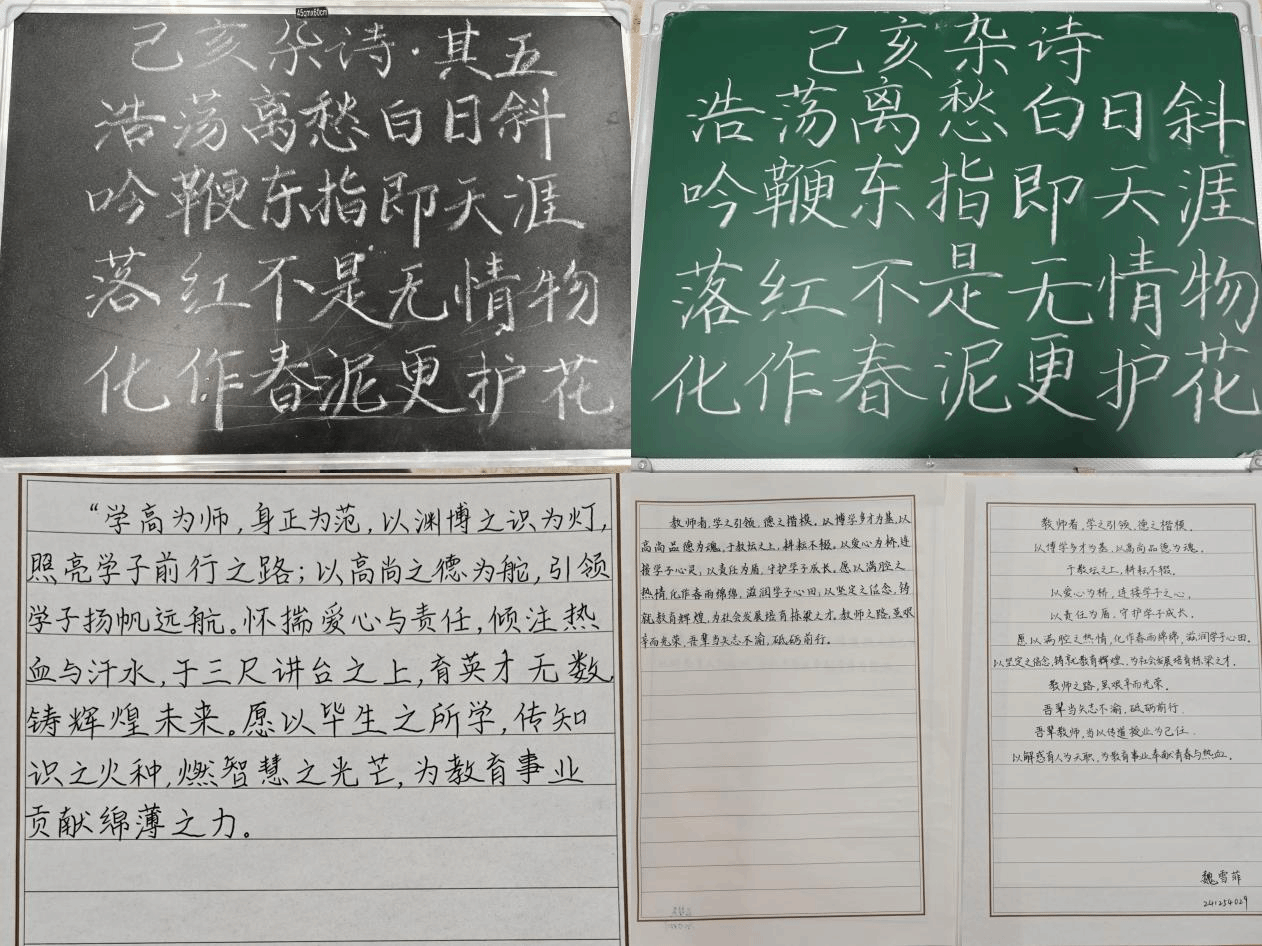 45cm×60cm
己亥杂诗·其五
浩荡离愁白日斜
吟鞭东指即天涯
落红不是无情物
化作春泥更护花
己亥杂诗
浩荡离愁白日斜
吟鞭东指即天涯
落红不是无情物
化作春泥更护花
“学高为师,身正为范,以渊博之识为灯,
照亮学子前行之路;以高尚之德为舵,引领
学子扬帆远航。怀揣爱心与责任,倾注热
血与汗水,于三尺讲台之上,育英才无数,
铸辉煌未来。愿以毕生之所学,传知
识之火种,燃智慧之光芒,为教育事业
贡献绵薄之力。
教师者,学之引领,德之楷模。以博学多才为基,以
高尚品德为魂。于教坛之上,耕耘不辍。以爱心为桥,连
接学子心灵;以责任为盾,守护学子成长。愿以满腔之
热情,化作春雨绵绵,滋润学子心田;以坚定之信念,铸
就教育辉煌,为社会发展培育栋梁之才。教师之路,虽艰
辛而光荣,吾辈当矢志不渝,砥砺前行。
教师者,学之引领,德之楷模。
以博学多才为基,以高尚品德为魂。
于教坛之上,耕耘不辍。
以爱心为桥,连接学子之心。
以责任为盾,守护学子成长。
愿以满腔之热情,化作春雨绵绵,滋润学子心田。
以坚定之信念,铸就教育辉煌,为社会发展培育栋梁之才。
教师之路,虽艰辛而光荣。
吾辈当矢志不渝,砥砺前行.
吾辈教师,当以传道授业为己任.
以解惑育人为天职,为教育事业奉献青春与热血。
魏雪菲
241254029